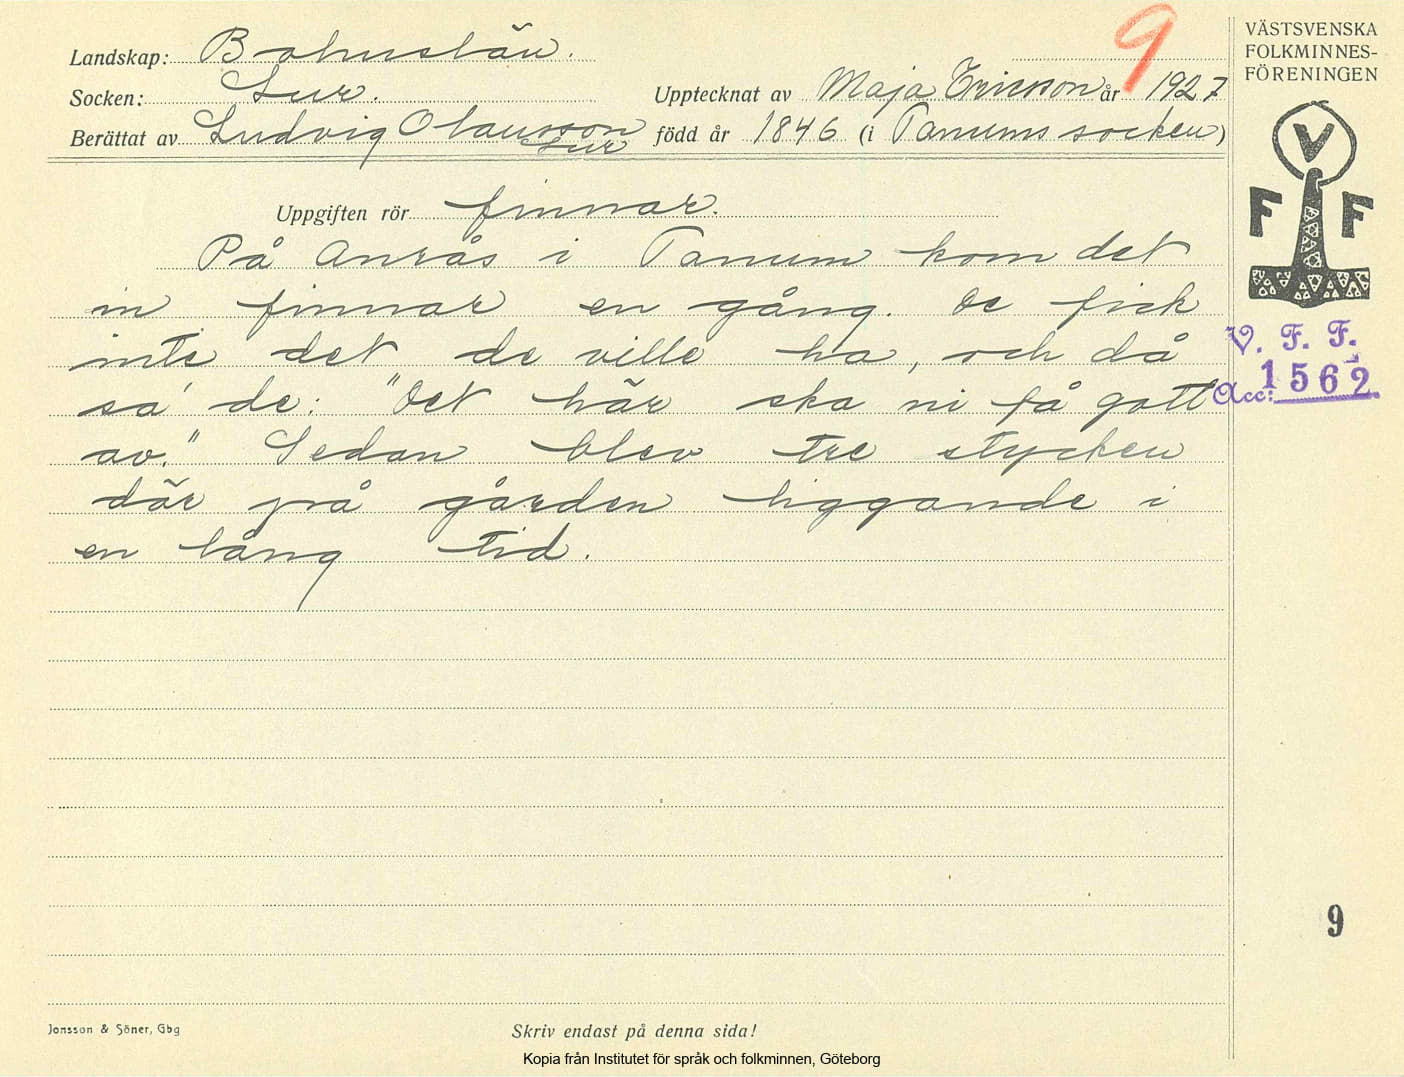 9
Landskap: Bohuslän.
Socken: Lur.
Upptecknat av Maja Ericsson år 1927
Berättat av Ludvig Olausson
Lur
född år 1846 (i Tanums socken)
Uppgiften rör finnar.
På Anrås i Tanum kom det
in finnar en gång. De fick
inte det de ville ha, och då
sa' de: "Det här ska ni få gott
av." Sedan blev tre stycken
där på gården liggande i
en lång tid.
VÄSTSVENSKA
FOLKMINNES-
FÖRENINGEN
V
F F
V. F. F.
Acc: 1562.
9
Jonsson & Söner, Gbg
Skriv endast på denna sida!
Kopia från Institutet för språk och folkminnen, Göteborg